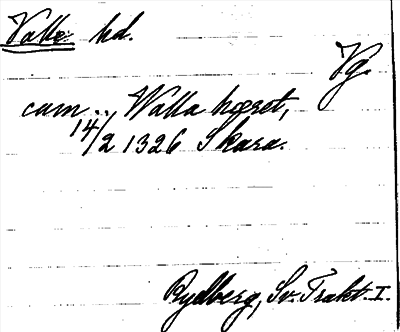 Valle hd.
Vg.
cum .., Walla hæret,
14/2 1326 Skara.
Rydberg, Sv. Trakt. I.